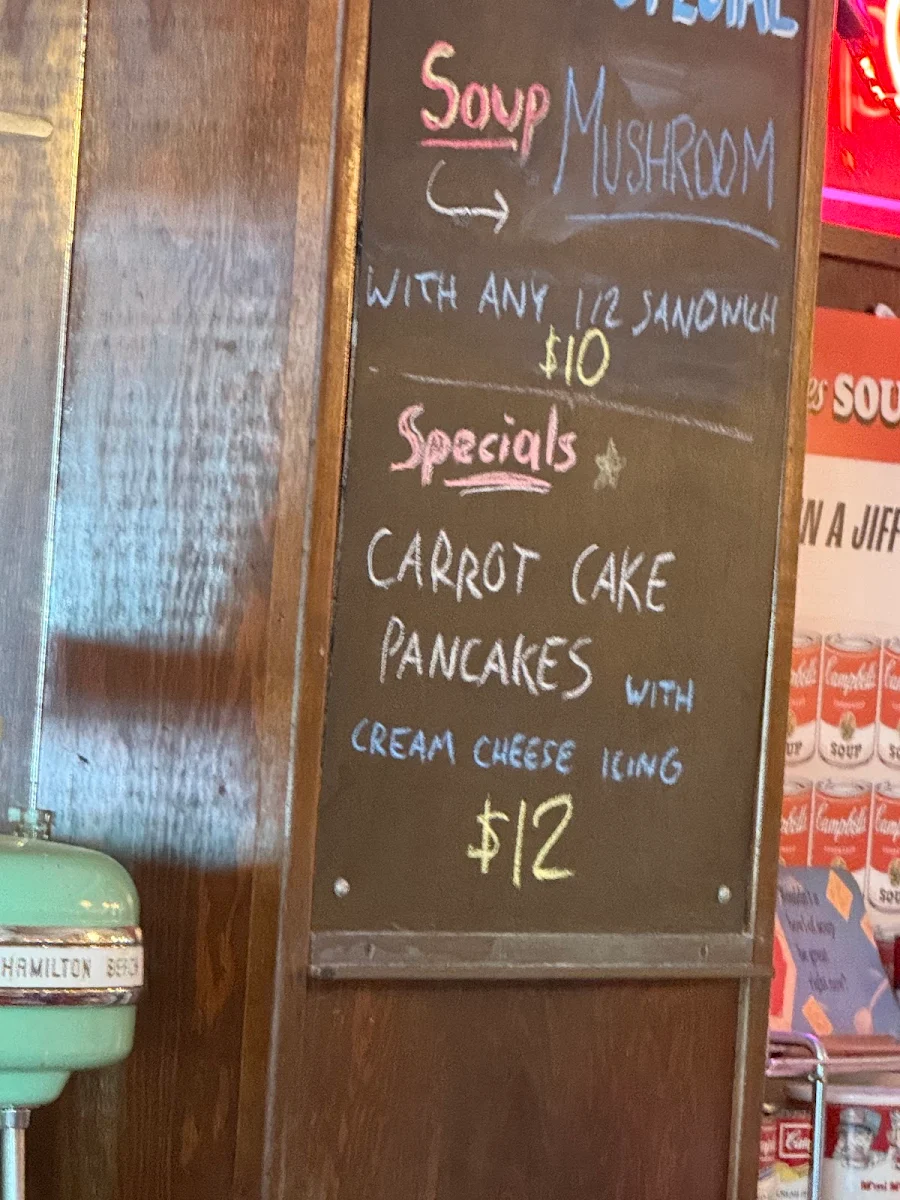 SPECIAL
Soup MUSHROOM
WITH ANY 1/2 SANDWICH
$10
Specials
CARROT CAKE
PANCAKES WITH
CREAM CHEESE ICING
$12
HAMILTON BEACH
SOU
IN A JIFF
Campbell's
SOUP
Campbell's